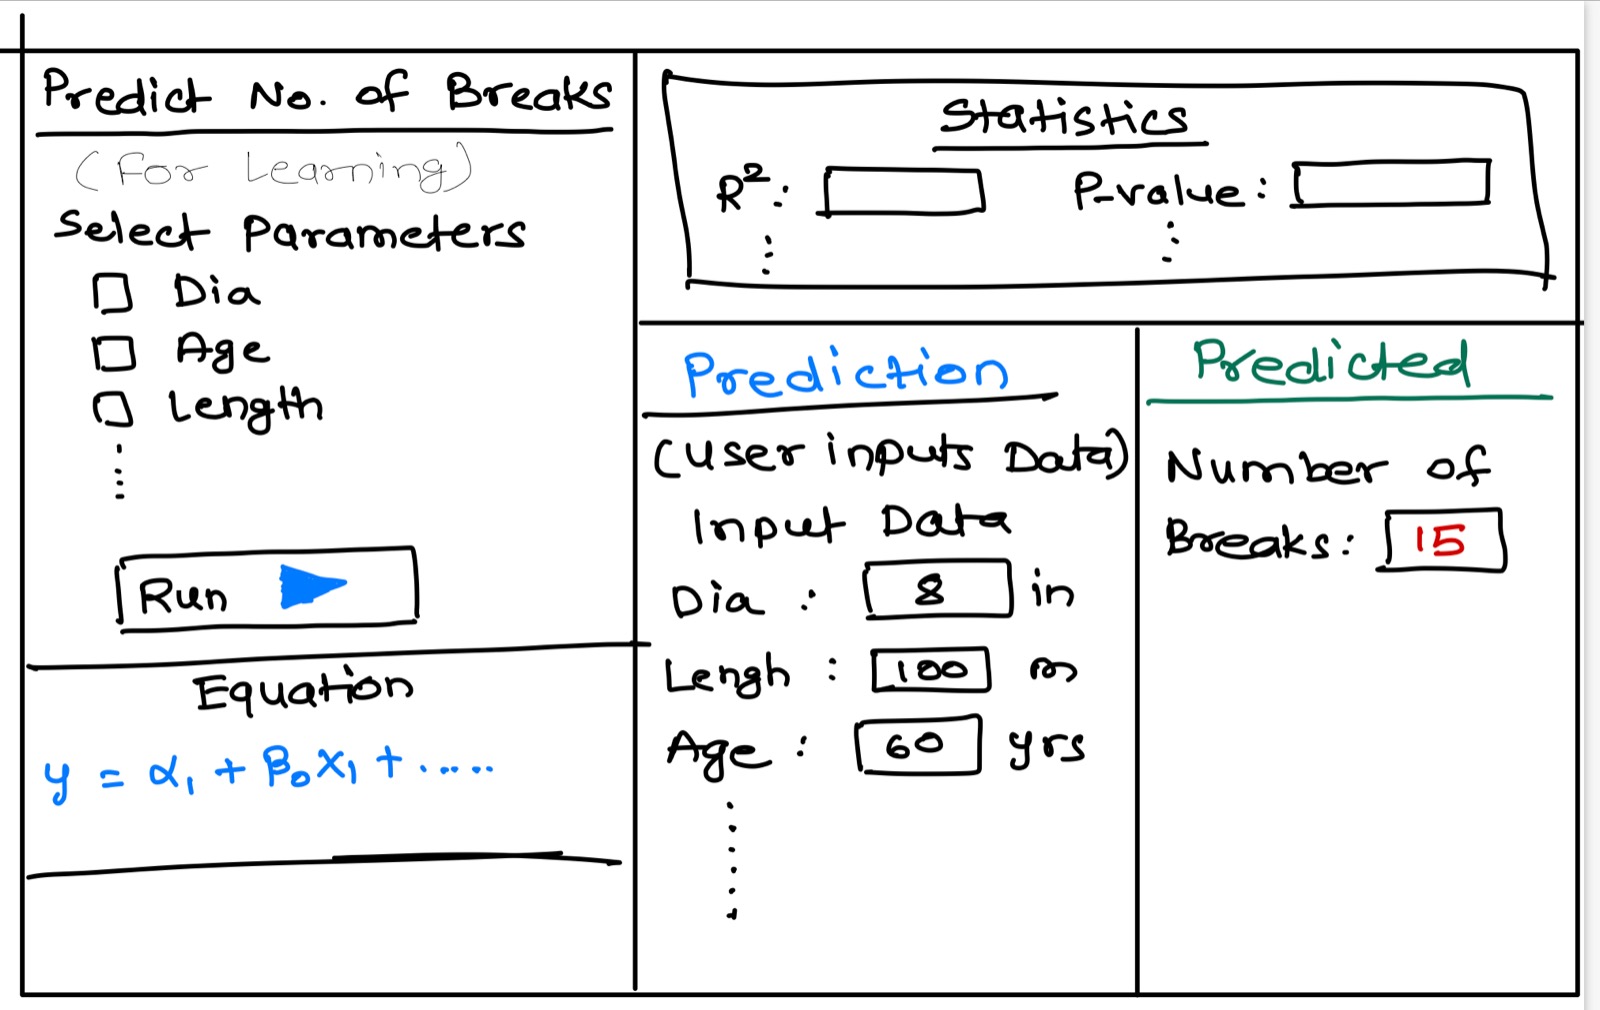 Predict No. of Breaks
(For Learning)
Select Parameters
Dia
Age
Length
Run
Equation
y = α₁ + β₀x₁ + .....
Statistics
R²:
P-value:
Prediction
(User inputs Data)
Input Data
Dia : 8 in
Lengh : 100 m
Age : 60 yrs
Predicted
Number of
Breaks: 15